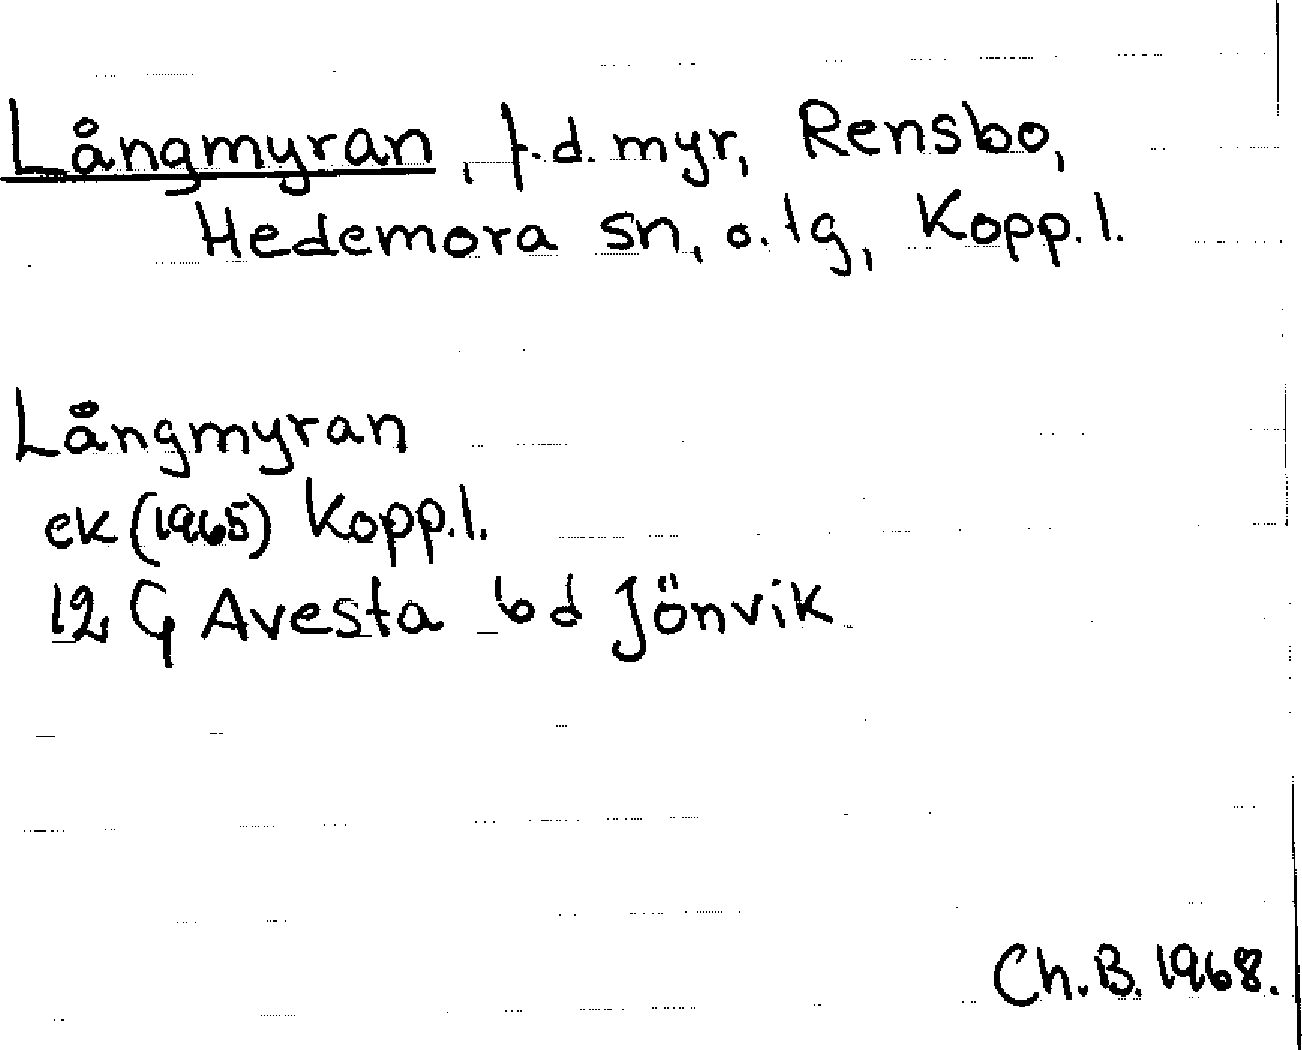 Långmyran, f.d. myr, Rensbo,
Hedemora sn, o. tg, Kopp. l.
Långmyran
ek (1965) Kopp.l.
12 G Avesta 6d Jönvik
Ch.B. 1968.